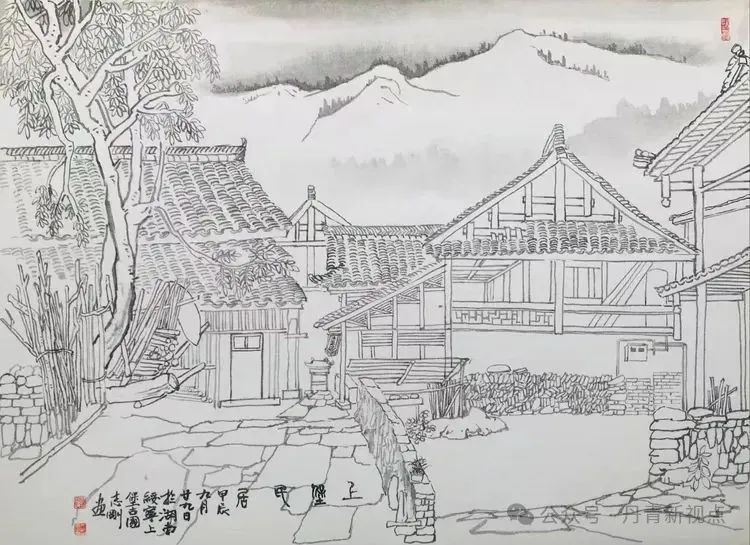 上堡民居
甲辰
九月
廿九日
於湖南
綏寧上
堡古國
志剛
畫
公众号 · 丹青新视点